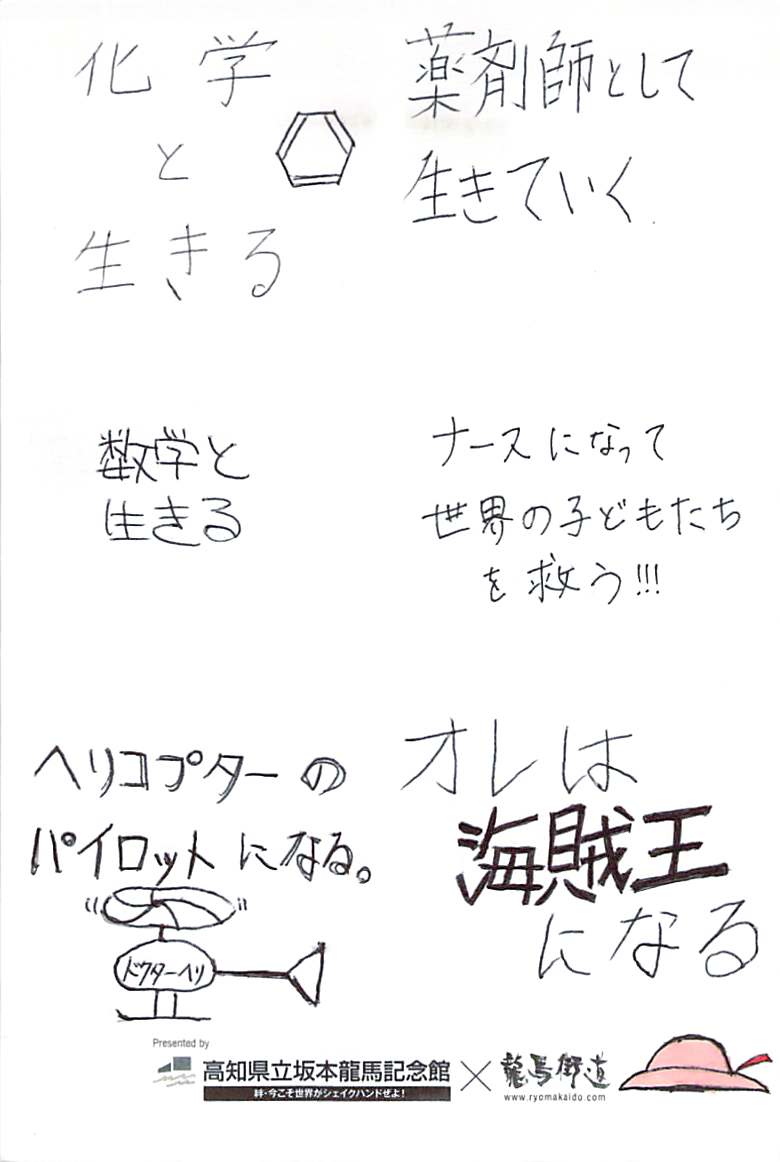 化学
と
生きる
薬剤師として
生きていく
数学と
生きる
ナースになって
世界の子どもたち
を救う!!!
ヘリコプターの
パイロットになる。
ドクターヘリ
オレは
海賊王
になる
Presented by
高知県立坂本龍馬記念館
絆・今こそ世界がシェイクハンドぜよ!
×
龍馬街道
www.ryomakaido.com